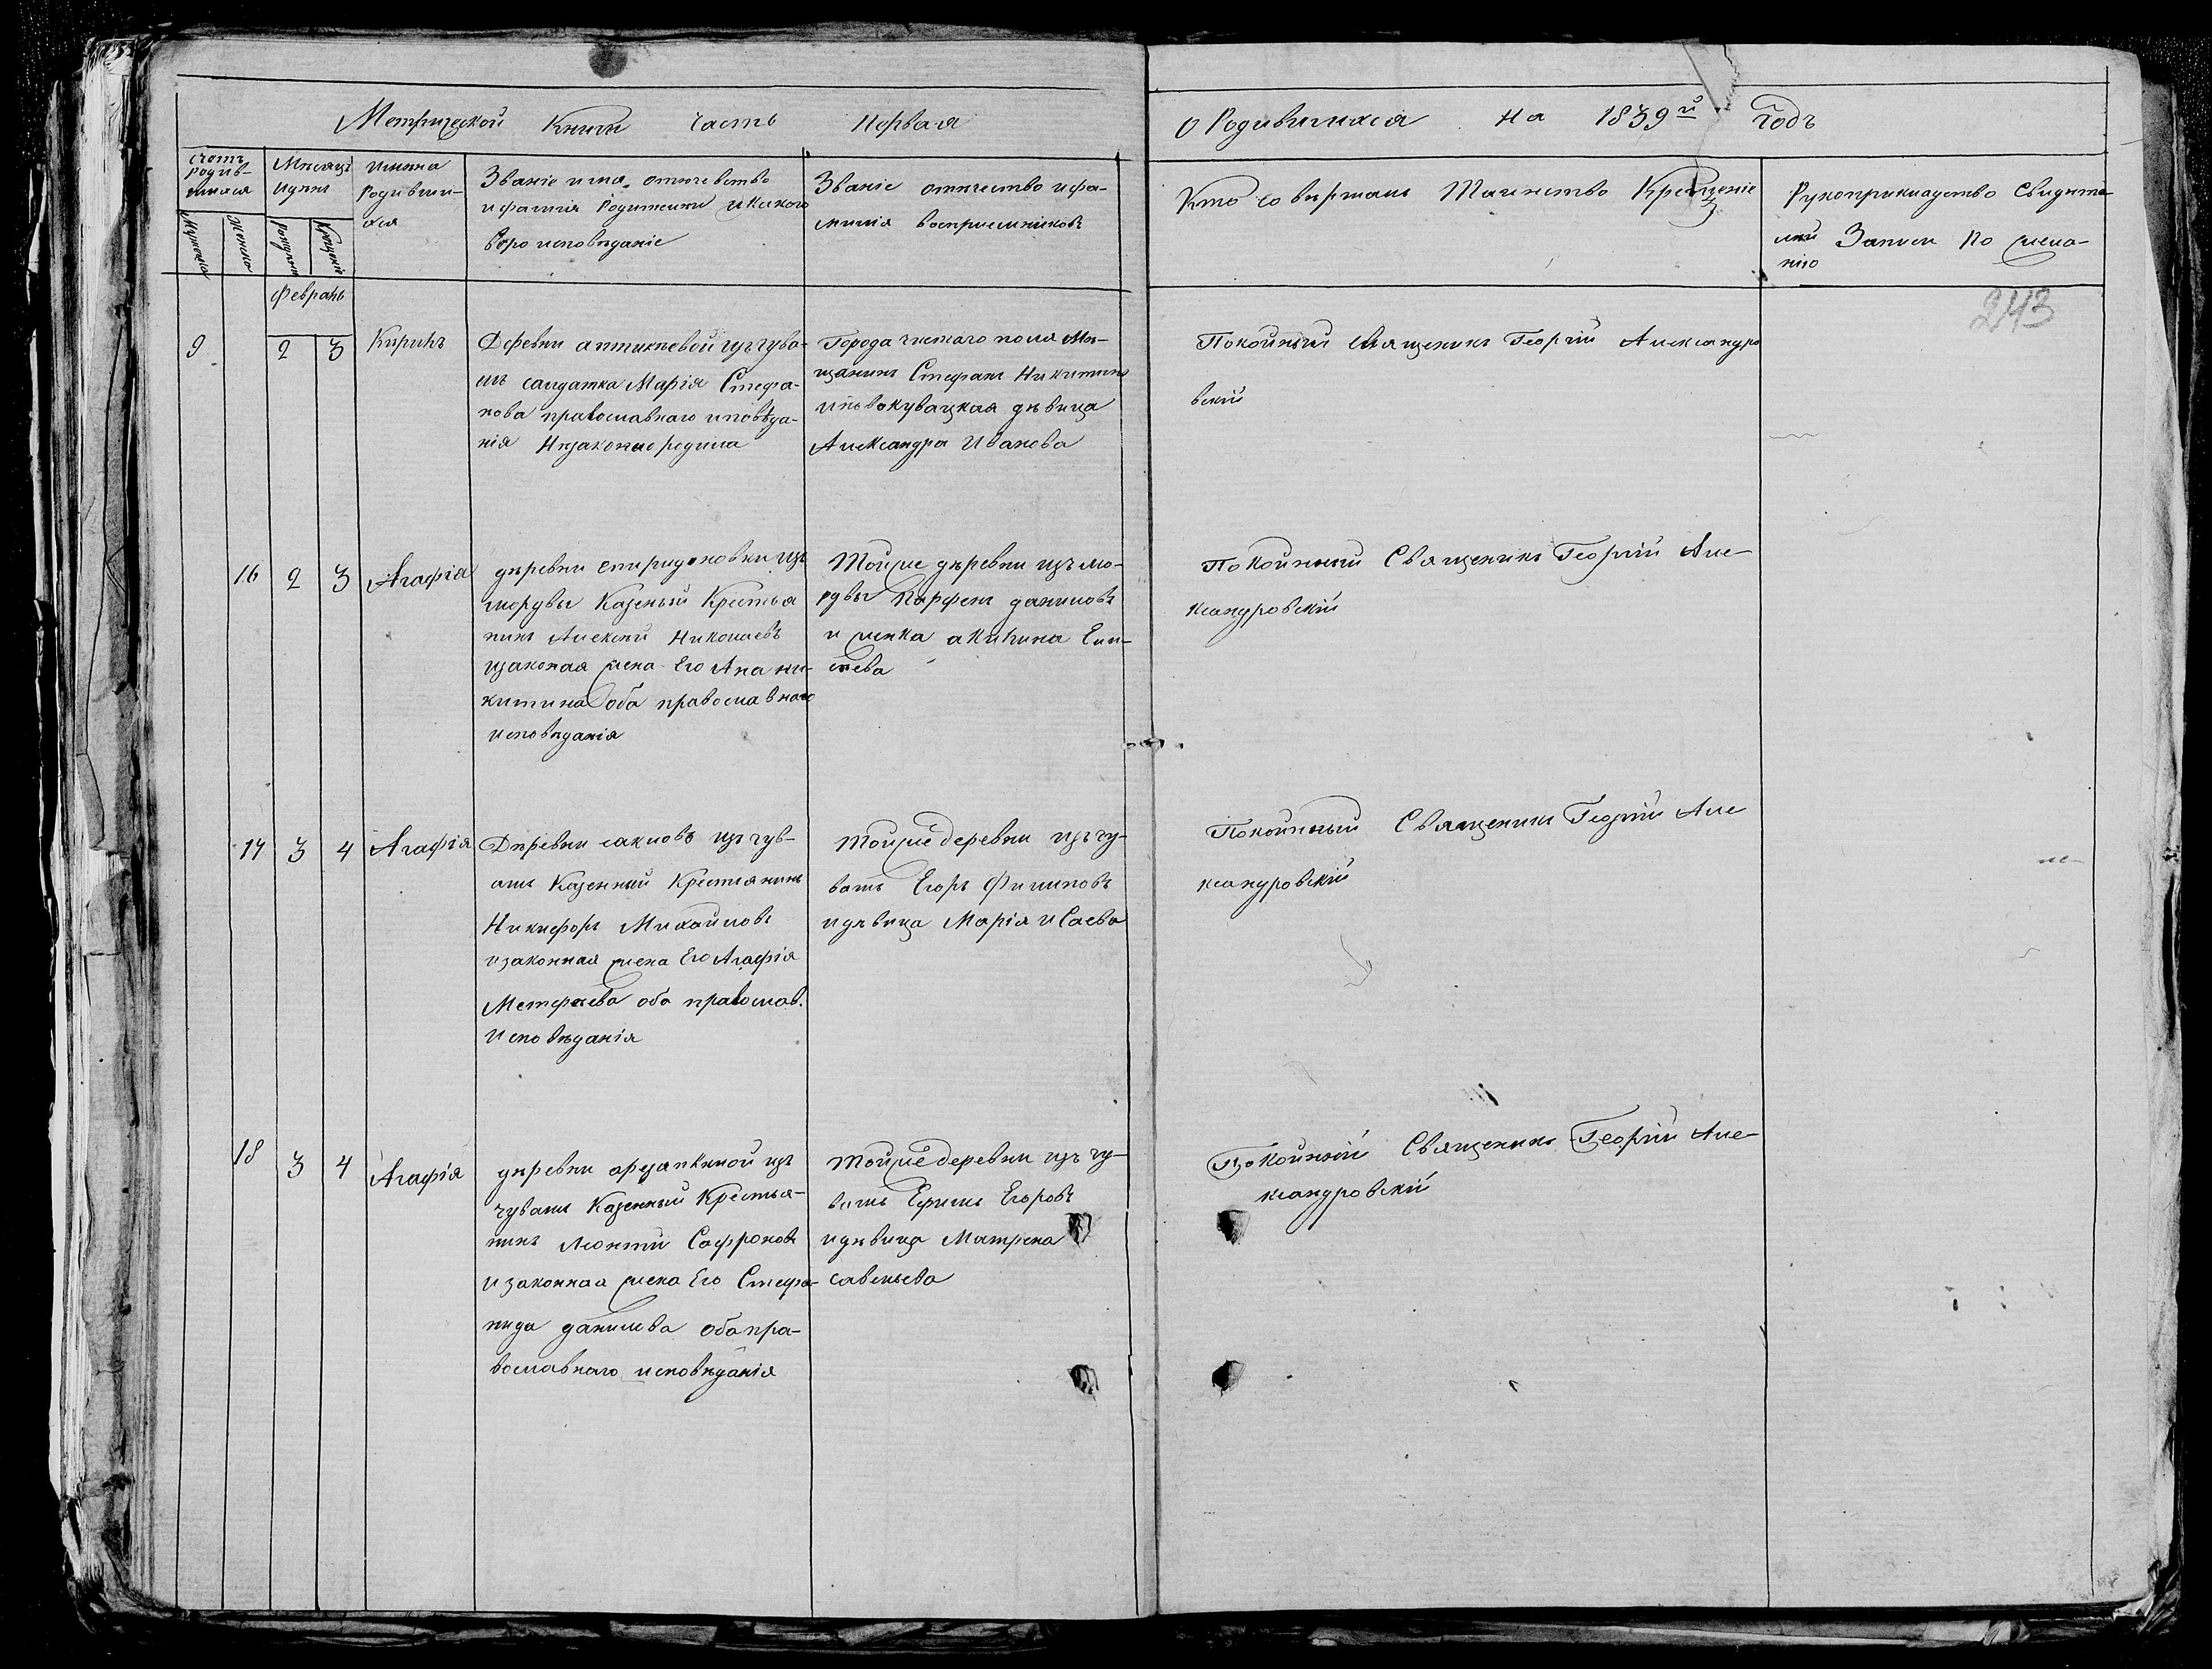 Метрической Книги часть Первая
О Родившихся на 1839й Годъ
счотъ родив-шихся
Мужеска
Женска
Месяцъ и день
Рожденія
Крещеніе
Имяна Родивши-хся
Званіе имя, отичевство
и фамилія Родителей и какого
веро исповеданіе
Званіе отичество и фа-
милия восприемниковъ
Кто совершалъ Таинство Крещеніе
Рукоприкладство Свидете-
лей Записи По жела-
нію
243
Февраль
9
2
3
Кирилъ
Деревни изъ чува-
шъ салдатка Марія Стефа-
нова православнаго исповѣда-
нія Незаконно родила
Города чистаго поля Ме-
щанинъ Стефанъ Никитинъ
дѣвица
Александра Иванова
Покойный священикъ Георгій Александро
вскій
16
2
3
Агафія
дѣревни спиридоновки изъ
мордвы Казеный Крестья
нинъ Алексей Николаевъ
изаконая жена Его Ана ни-
китина оба православнаго
исповеданія
Тойже дѣревни изъ мо-
рдвы Парфенъ даниловъ
и женка акилина
Покойный Священикъ Георгій Але-
ксандровскій
17
3
4
Агафія
Деревни саклова изъ чув-
ашъ Казенный Крестиянинъ
Никифоръ Михайловъ
изаконная жена Его Агафія
Метфаева оба православ.
Исповѣданія
Тойже деревни изъ чу-
вашъ Егоръ Филиповъ
и дѣвица Марія иСаева
Покойный Священикъ Георгій Але
ксандровскій
18
3
4
Агафія
дѣревни изъ
чувашъ Казенный Крестья-
нинъ Леонтій Сафроновъ
изаконная жена Его Стефа-
нида данилова оба пра-
вославнаго исповѣданія
Тойже деревни изъ чу-
вашъ Ефимъ Егоровъ
и дѣвица Матрена
савельева
Покойный Священикъ Георгій Але-
ксандровскій